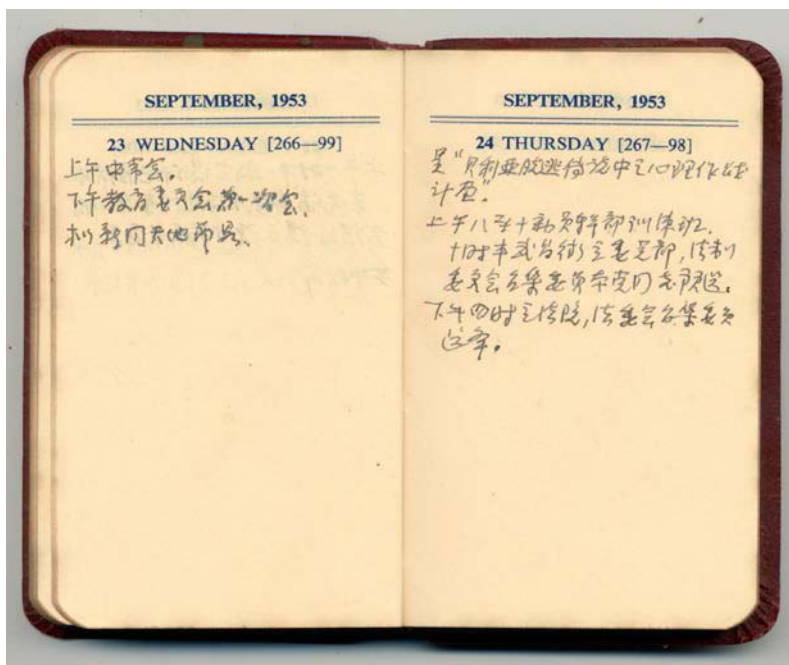 SEPTEMBER, 1953
23 WEDNESDAY [266—99]
上午中常会。
下午教育委员会第一次会。
拟新闻天地节
SEPTEMBER, 1953
24 THURSDAY [267—98]
呈"贝利亚脱逃传说中之心理作战
计画"。
上午八至十动员干部训练班。
十时半武昌街立委党部,法制
委员会召集委员本党同志
下午四时立法院,法委会召集委员